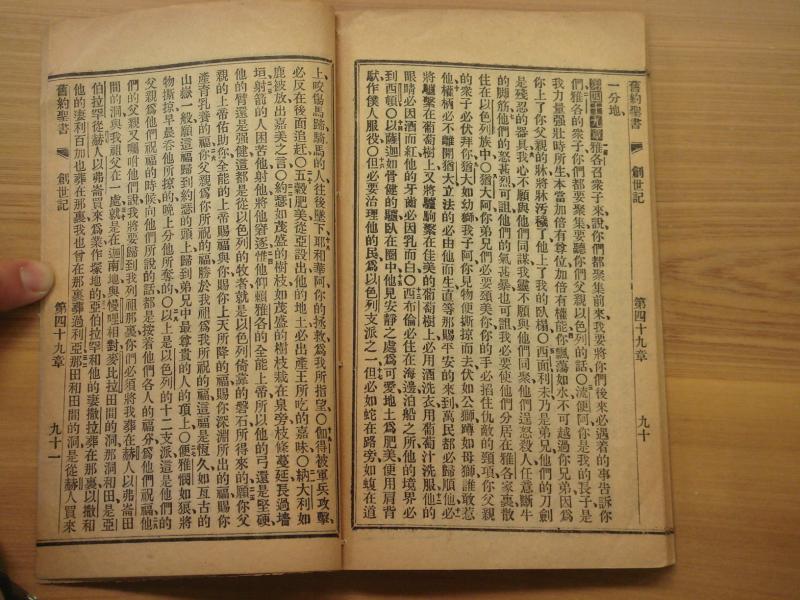 舊約聖書 創世記 第四十九章 九十
一分地、
第四十九章 雅各召衆子來說你們都聚集前來我要將你們後來必遇着的事告訴你
們雅各的衆子你們都要聚集要聽你們父親以色列的話○流便阿你是我的長子是
我力量强壯時所生本當加倍有尊位加倍有權能你飄蕩如水不可越過你兄弟因爲
你上了你父親的牀將牀汚穢了他上了我的臥榻○西面利未乃是弟兄他們的刀劍
是殘忍的器具我心不願與他們同謀我靈不願與他們同聚他們逞怒殺人任意斷牛
的脚筋他們的怒甚烈可詛他們的氣甚暴也可詛我必要使他們分居在雅各家裏散
住在以色列族中○猶大阿你弟兄們必要頌美你你的手必搯住仇敵的頸項你父親
的衆子必伏拜你猶大如幼獅我子阿你見物便撕掠而去伏如公獅蹲如母獅誰敢惹
他權柄必不離開猶大立法的必由他而生直等那賜平安的來到萬民都必歸順他他必
將驢繫在葡萄樹上又將驢駒繫在佳美的葡萄樹上必用酒洗衣用葡萄汁洗服他的
眼睛必因酒而紅他的牙齒必因乳而白○西布倫必住在海邊泊船之所他的境界必
到西頓○以薩迦如骨健的驢臥在圈中他見安靜之處爲可愛地土爲肥美便用肩背
馱作僕人服役○但必要治理他的民爲以色列支派之一但必如蛇在路旁如虺在道
上咬傷馬蹄騎馬的人往後墜下耶和華阿你的拯救爲我所指望○伽得被軍兵攻擊、
必反在後面追赶○五穀肥美從亞設出他的地土必出產王所吃的嘉味○納大利如
鹿被放出嘉美之言○約瑟如茂盛的樹枝如茂盛的樹枝栽在泉旁枝條蔓延長過墻
垣射箭的人困苦他射他將他窘逐惟他仰賴雅各的全能上帝所以他的弓還是堅硬
他的臂還是强健這都是從以色列的牧者就是以色列倚靠的磐石所得來的願你父
親的上帝佑助你全能的上帝賜福與你賜你上天所降的福賜你深淵所出的福賜你
產育乳養的福你父親爲你所祝的福勝於我祖爲我所祝的福這福是恆久如亙古的
山嶽一般願這福歸到約瑟的頭上歸到弟兄中最尊貴的人的頂上○便雅憫如狼將
物撕掠早晨吞他所掠的晚上分他所奪的○以上是以色列的十二支派這是他們的
父親爲他們祝福的時候向他們所說的話都是按着他們各人的福分爲他們祝福他
們的父親又囑咐他們說我將要歸到我列祖那裏你們必須將我葬在赫人以弗崙田
間的洞與我祖父在一處就是在迦南地與幔哩相對麥比拉田間的洞那洞和田是亞
伯拉罕從赫人以弗崙買來爲業作塚地的亞伯拉罕和他的妻撒拉葬在那裏以撒和
他的妻利百加也葬在那裏我也曾在那裏葬過利亞那田和田間的洞是從赫人買來
舊約聖書 創世記 第四十九章 九十一